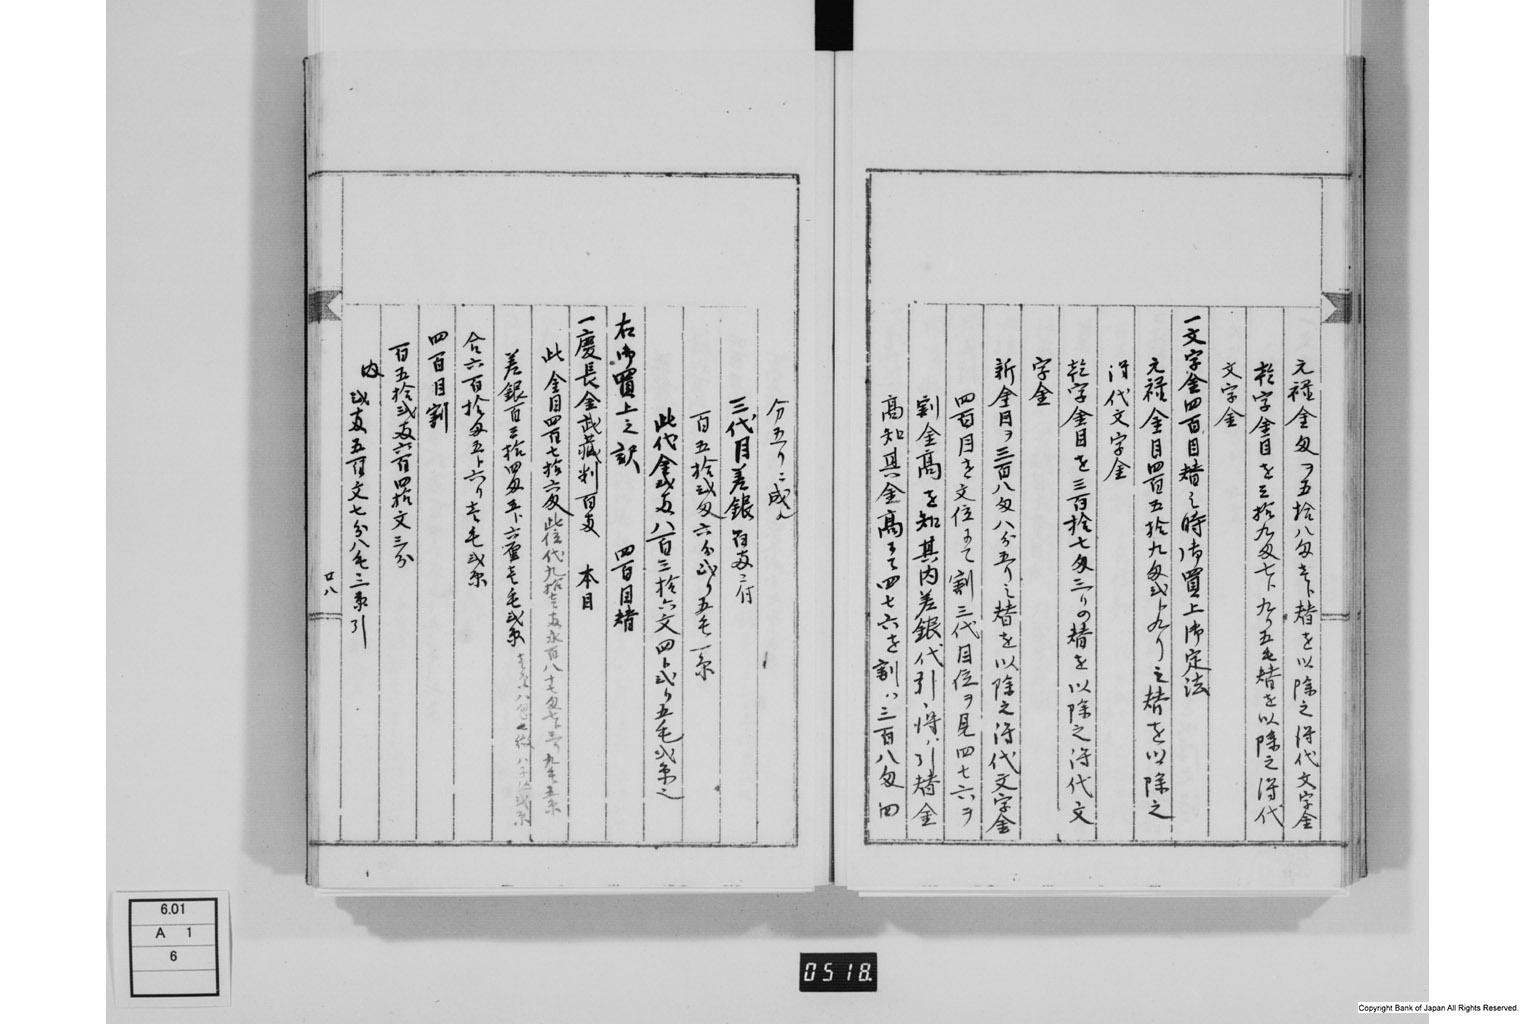 元禄金匁ヲ五拾八匁壱ト替を以除之得代文字金
乾字金目を三拾九匁七ト九り五毛替を以除之得代
文字金
一文字金四百目替之時御買上御定法
元禄金目四百五拾九匁弐ト九り之替を以除之
得代文字金
乾字金目を三百拾七匁三りの替を以除之得代文
字金
新金目ヲ三百八匁八分五り之替を以除之得代文字金
四百目を文位にて割三代目位ヲ見四七六ヲ
割金高を知其内差銀代引得ハ引替金
高知其金高にて四七六を割ハ三百八匁四
分五りニ成ル
三代目差銀百両ニ付
百五拾弐匁六分弐り五毛一糸
此代金弐両八百三拾六文四ト弐り五毛弐糸之
右御買上之訳 四百目替
一慶長金武蔵判百両 本目
此金目四百七拾六匁此位代九拾壱両永百八十七匁七ト三り九毛五糸
差銀百三拾四匁五ト六厘壱毛弐糸
合六百拾匁五ト六り壱毛弐糸
四百目割
百五拾弐両六百四拾文三分
内 弐両五百文七分八毛三糸引
廿八
6.01
A 1
6
0518.
Copyright Bank of Japan All Rights Reserved.